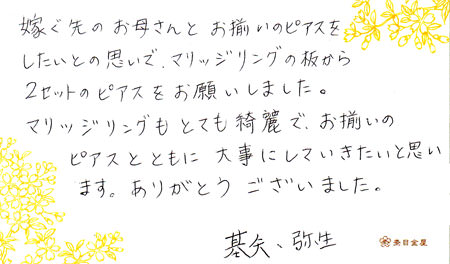 嫁ぐ先のお母さんとお揃いのピアスを
したいとの思いで、マリッジリングの板から
2セットのピアスをお願いしました。
マリッジリングもとても綺麗で、お揃いの
ピアスとともに大事にしていきたいと思い
ます。ありがとうございました。
基矢、弥生
杢目金屋